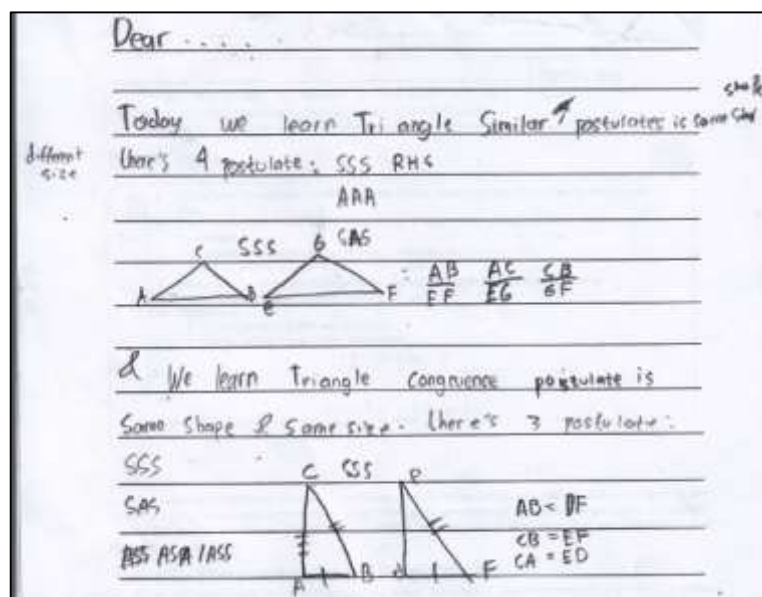 Dear .....
shape
Today we learn Triangle Similar 4 postulates is same
different size
there's 4 postulate: SSS RHS
AAA
SAS
C SSS G
A B E F = AB/EF AC/EG CB/GF
& We learn Triangle congruence postulate is
Same shape & same size. there's 3 postulate:
SSS
C SSS
SAS
AB = DF
CB = EF
ASA/ASS
CA = ED
A B d F